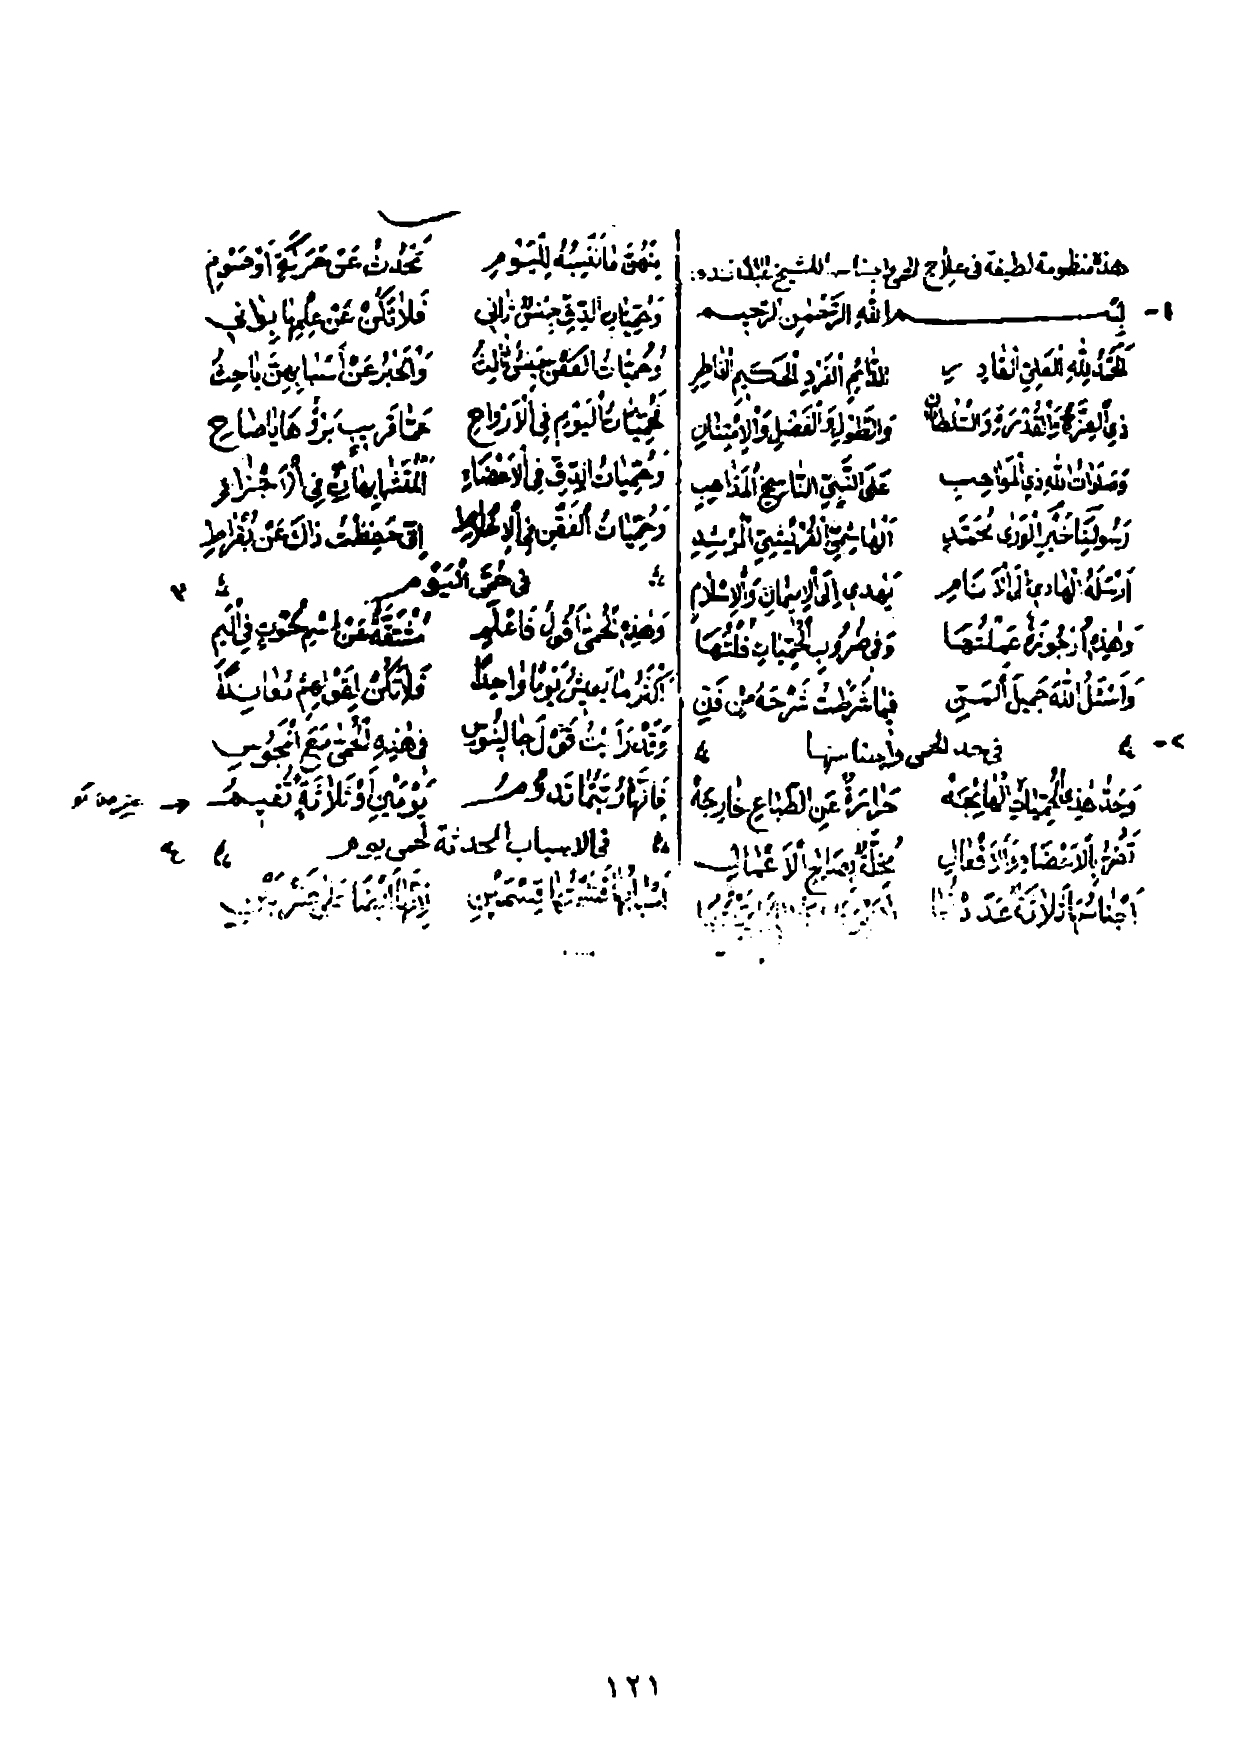 هذه منظومة لطيفة في علاج الحمى للشيخ
١- بسم الله الرحمن الرحيم
اَلْحَمْدُ لِلّٰهِ الْعَلِيِّ الْقَادِرِ الدَّائِمِ الْفَرْدِ الْحَكِيمِ الْفَاطِرِ
ذِي الْعِزَّةِ وَالْقُدْرَةِ وَالسُّلْطَانِ وَالطَّوْلِ وَالْفَضْلِ وَالْاِمْتِنَانِ
وَصَلَوَاتُ اللهِ ذِي الْمَوَاهِبِ عَلَى النَّبِيِّ النَّاسِخِ الْمَذَاهِبِ
رَسُولِنَا خَيْرِ الْوَرَى مُحَمَّدِ اَلْهَاشِمِيِّ الْقُرَيْشِيِّ الْمُرْشِدِ
اَرْسَلَهُ الْهَادِي اِلَى الْاَنَامِ يَهْدِي اِلَى الْاِيمَانِ وَالْاِسْلَامِ
وَهٰذِهِ اُرْجُوزَةٌ عَمِلْتُهَا وَفِي ضُرُوبِ الْحُمَّيَاتِ قُلْتُهَا
وَاَسْئَلُ اللهَ جَمِيلَ الْمَنِّ فِيمَا شَرَطْتُ شَرْحَهُ مِنْ فَنِّ
٢- في حد الحمى واجناسها
وَحَدُّ هٰذِي الْحُمَّيَاتِ الْهَائِجَهْ حَرَارَةٌ عَنِ الطِّبَاعِ خَارِجَهْ
تَضُرُّ بِالْاَعْضَاءِ وَالْاَفْعَالِ مُخِلَّةٌ بِصَالِحِ الْاَعْمَالِ
اَجْنَاسُهَا ثَلَاثَةٌ عَدَدْنَا
مِنْهُنَّ مَا نَنْسِبُهُ لِلْيَوْمِ تَحْدُثُ عَنْ حَرَكَةٍ اَوْ صَوْمِ
وَحُمَّيَاتُ الدِّقِّ جِنْسٌ ثَانِي فَلَا تَكُنْ عَنْ عِلْمِهَا بِوَانِي
وَحُمَّيَاتُ الْعَفْنِ جِنْسٌ ثَالِثُ وَالْحَبْرُ عَنْ أَسْبَابِهِنَّ بَاحِثُ
فَحُمَّيَاتُ الْيَوْمِ فِي الْاَرْوَاحِ حَمَّا قَرِيبٌ بُرْؤُهَا يَا صَاحِ
وَحُمَّيَاتُ الدِّقِّ فِي الْاَعْضَاءِ الْمُتَشَابِهَاتِ فِي الْاَجْزَاءِ
وَحُمَّيَاتُ الْعَفْنِ فِي الْاَخْلَاطِ اِنِّي حَفِظْتُ ذَاكَ عَنْ بُقْرَاطِ
في حُمَّى الْيَوْمِ ٣
وَهٰذِهِ الْحُمَّى اَقُولُ فَاعْلَمِ مُشْتَقَّةٌ عَنْ اِسْمِ حُوتٍ فِي الْيَمِ
اَكْثَرُ مَا يَعِيشُ يَوْمًا وَاحِدًا فَلَا تَكُنْ لِقَوْلِهِمْ مُعَانِدًا
وَقَدْ رَاَيْتُ قَوْلَ جَالِينُوسِ فِي هٰذِهِ الْحُمَّى مَعَ الْمَجُوسِ
فَاِنَّهَا رُبَّتَمَا تَدُومُ يَوْمَيْنِ اَوْ ثَلَاثَةً تُقِيمُ
في الاسباب المحدثة لحمى يوم ٤
اَسْبَابُهَا قَسَمْتُهَا قِسْمَيْنِ
١٢١